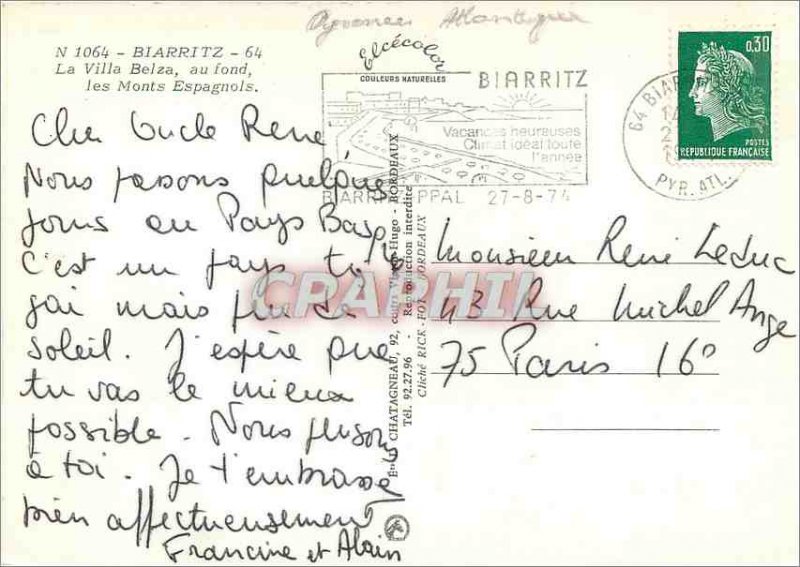 Pyrenees Atlantiques
N 1064 - BIARRITZ - 64
La Villa Belza, au fond,
les Monts Espagnols.
Elcécolor
COULEURS NATURELLES
BIARRITZ
Vacances heureuses
Climat idéal toute
l'année
BIARRITZ PPAL 27-8-74
64 BIARRITZ
PYR. ATL.
0,30
POSTES
REPUBLIQUE FRANÇAISE
Cher Oncle René
Nous passons quelques
jours au Pays Basque
C'est un pays très
gai mais peu de
soleil. J'espère que
tu vas le mieux
possible. Nous pensons
à toi. Je t'embrasse
bien affectueusement
Francine et Alain
Monsieur René Leduc
43 Rue Michel Ange
75 Paris 16°
CHATAGNEAU, 92, cours Victor-Hugo - BORDEAUX
Tél. 92.27.96 - Reproduction interdite
Cliché RICK-FOT BORDEAUX
CPAPHIL